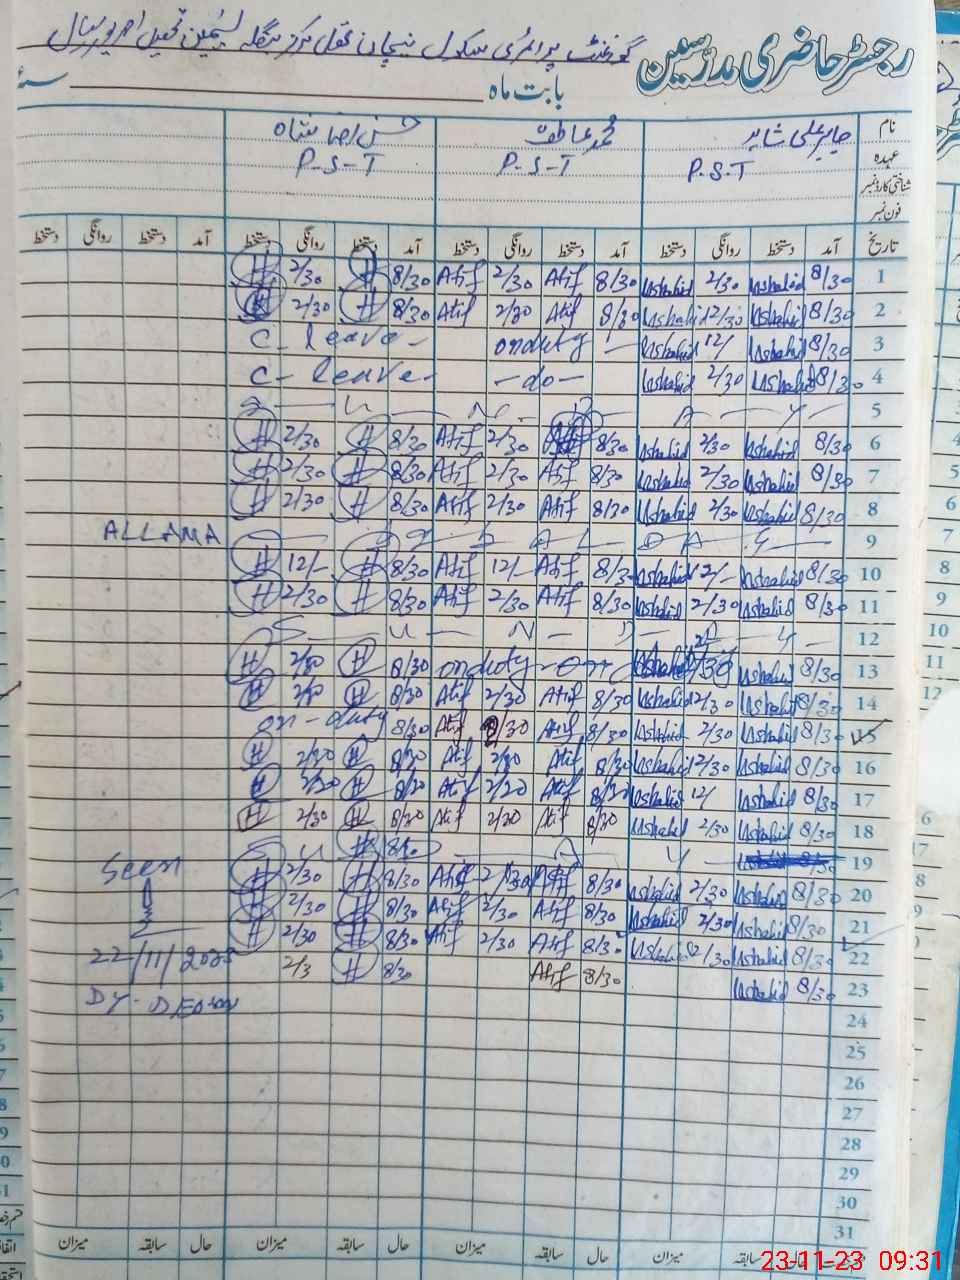 گورنمنٹ پرائمری سکول
رجسٹر حاضری مدرسین
بابت ماہ
نام جابر علی شاہد محمد عاطف
عہدہ P.S.T P-S-T P-S-T
شناختی کارڈ نمبر
فون نمبر
تاریخ آمد دستخط روانگی دستخط آمد دستخط روانگی دستخط آمد دستخط روانگی دستخط آمد دستخط روانگی دستخط
1 8/30 Ushahid 2/30 Ushahid 8/30 Atif 2/30 Atif 8/30 H 2/30 H
2 8/30 Ushahid 2/30 Ushahid 8/30 Atif 2/30 Atif 8/30 H 2/30 H
3 8/30 Ushahid 12/ Ushahid onduty C-leave-
4 8/30 Ushahid 2/30 Ushahid -do- C-leave-
5 S-U-N-D-A-Y-
6 8/30 Ushahid 2/30 Ushahid 8/30 2/30 Atif 8/30 H 2/30 H
7 8/30 Ushahid 2/30 Ushahid 8/30 Atif 2/30 Atif 8/30 H 2/30 H
8 8/30 Ushahid 2/30 Ushahid 8/30 Atif 2/30 Atif 8/30 H 2/30 H
9 ALLAMA IQBAL DAY
10 8/30 Ushahid 12/- Ushahid 8/30 Atif 12/- Atif 8/30 H 12/- H
11 8/30 Ushahid 2/30 Ushahid 8/30 Atif 2/30 Atif 8/30 H 2/30 H
12 S-U-N-D-A-Y
13 8/30 Ushahid 2/30 Ushahid onduty 8/30 H 2/30 H
14 8/30 Ushahid 2/30 Ushahid 8/30 Atif 2/30 Atif 8/30 H 2/30 H
15 8/30 Ushahid 2/30 Ushahid 8/30 Atif 2/30 Atif 8/30 on-duty
16 8/30 Ushahid 2/30 Ushahid 8/30 Atif 2/30 Atif 8/30 H 2/30 H
17 8/30 Ushahid 12/ Ushahid 8/30 Atif 2/30 Atif 8/30 H 2/30 H
18 8/30 Ushahid 2/30 Ushahid 8/30 Atif 2/30 Atif 8/30 H 2/30 H
19 S U D Y
20 8/30 Ushahid 2/30 Ushahid 8/30 Atif 2/30 Atif 8/30 H 2/30 H
21 8/30 Ushahid 2/30 Ushahid 8/30 Atif 2/30 Atif 8/30 H 2/30 H
22 8/30 Ushahid 2/30 Ushahid 8/30 Atif 2/30 Atif 8/30 H 2/30 H
23 8/30 Ushahid 8/30 Atif 8/30 H 2/3
Seen
22/11/2023
Dy-DEO
24
25
26
27
28
29
30
31
حال سابقہ میزان حال سابقہ میزان حال سابقہ میزان حال سابقہ میزان
23-11-23 09:31